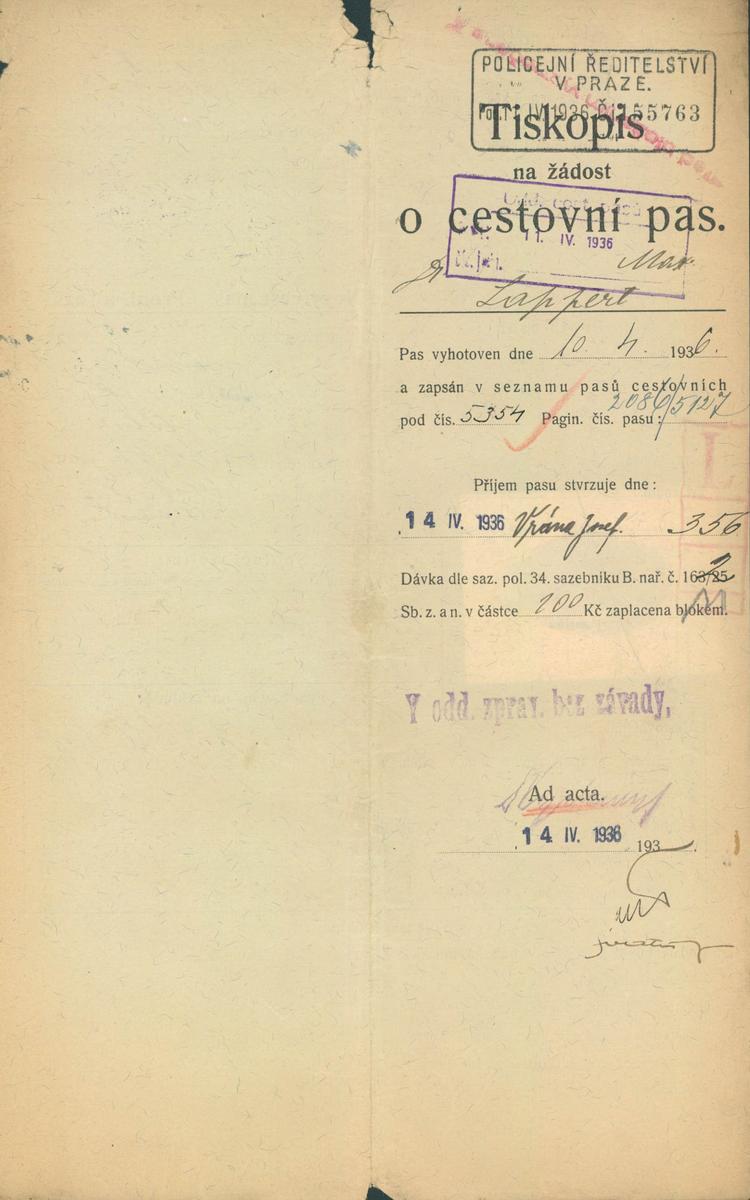 POLICEJNÍ ŘEDITELSTVÍ
V PRAZE.
11 IV. 1936 55763
Tiskopis
na žádost
o cestovní pas.
11. IV. 1936
Dr Max
Lappert
Pas vyhotoven dne 10. 4. 1936.
a zapsán v seznamu pasů cestovních
pod čís. 5354 Pagin. čís. pasu: 2086/5127
Příjem pasu stvrzuje dne:
14 IV. 1936 Vrána Josef. 356
Dávka dle saz. pol. 34. sazebníku B. nař. č. 163/25
Sb. z. a n. v částce 100 Kč zaplacena blokem.
V odd. zprav. bez závady,
Ad acta.
14 IV. 1936 193